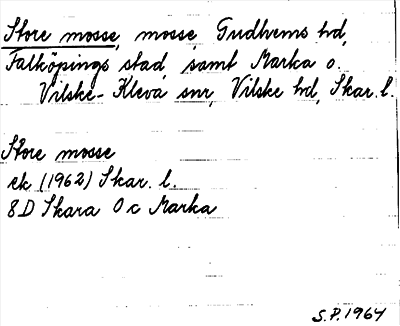 Store mosse, mosse, Gudhems hd,
Falköpings stad, samt Marka o.
Vilske-Kleva snr, Vilske hd, Skar. l.
Store mosse
ek (1962) Skar. l.
8D Skara 0c Marka
S.P. 1964